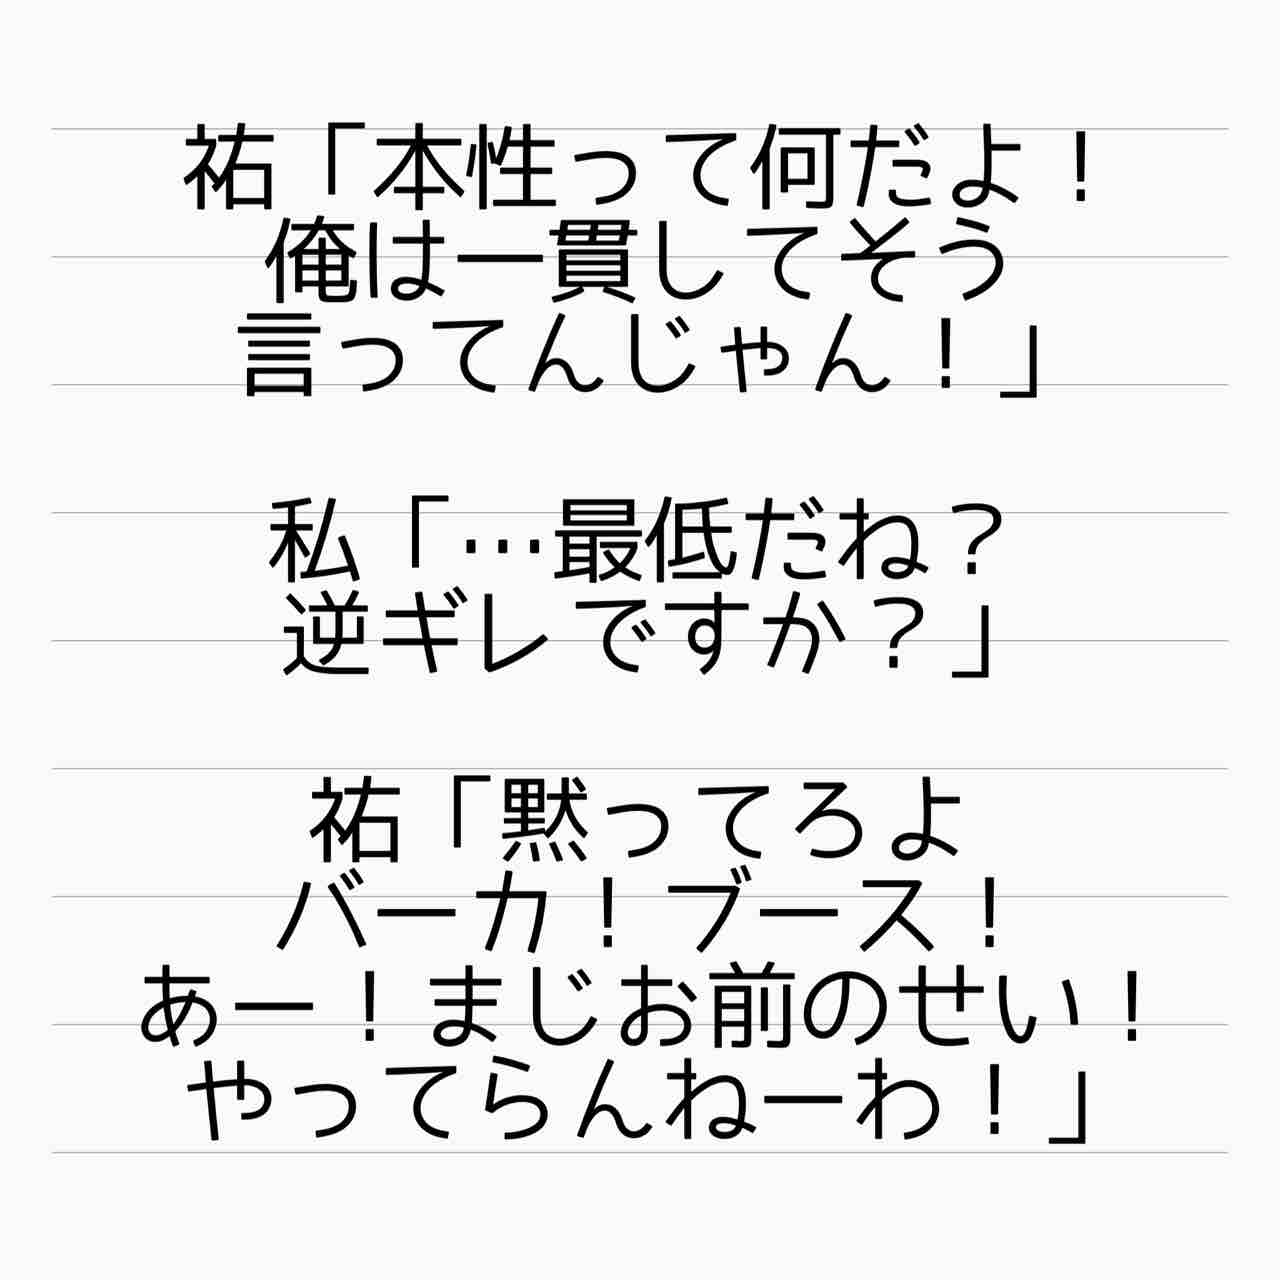 祐「本性って何だよ！
俺は一貫してそう
言ってんじゃん！」
私「…最低だね？
逆ギレですか？」
祐「黙ってろよ
バーカ！ブース！
あー！まじお前のせい！
やってらんねーわ！」